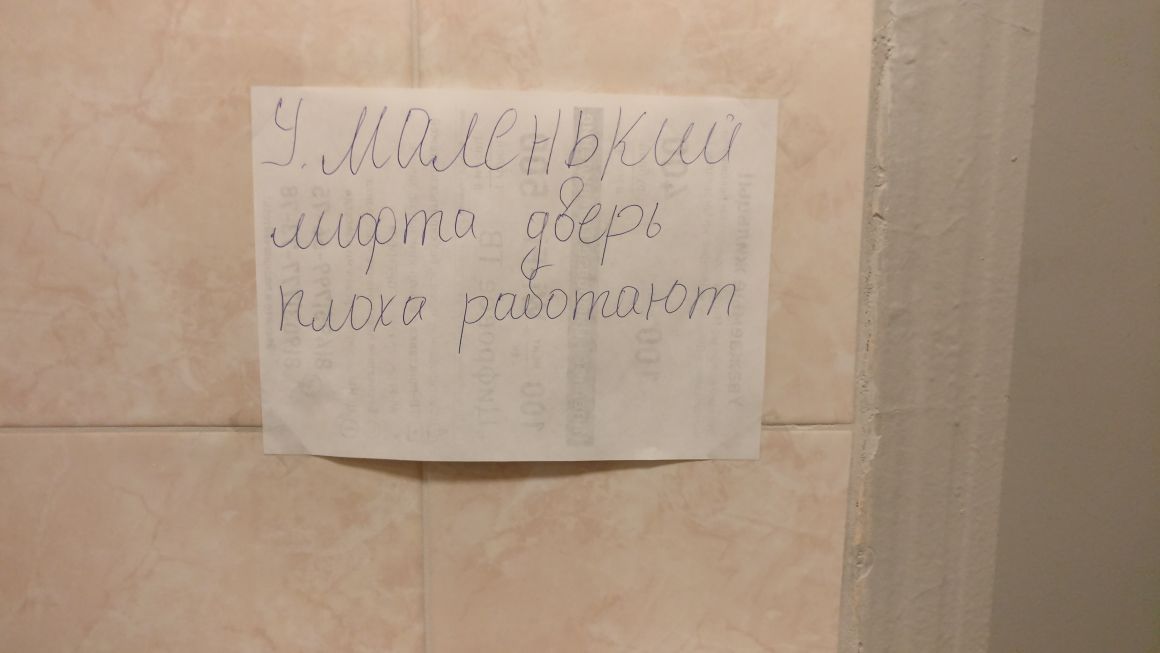 У. маленький
лифта дверь
плоха работают